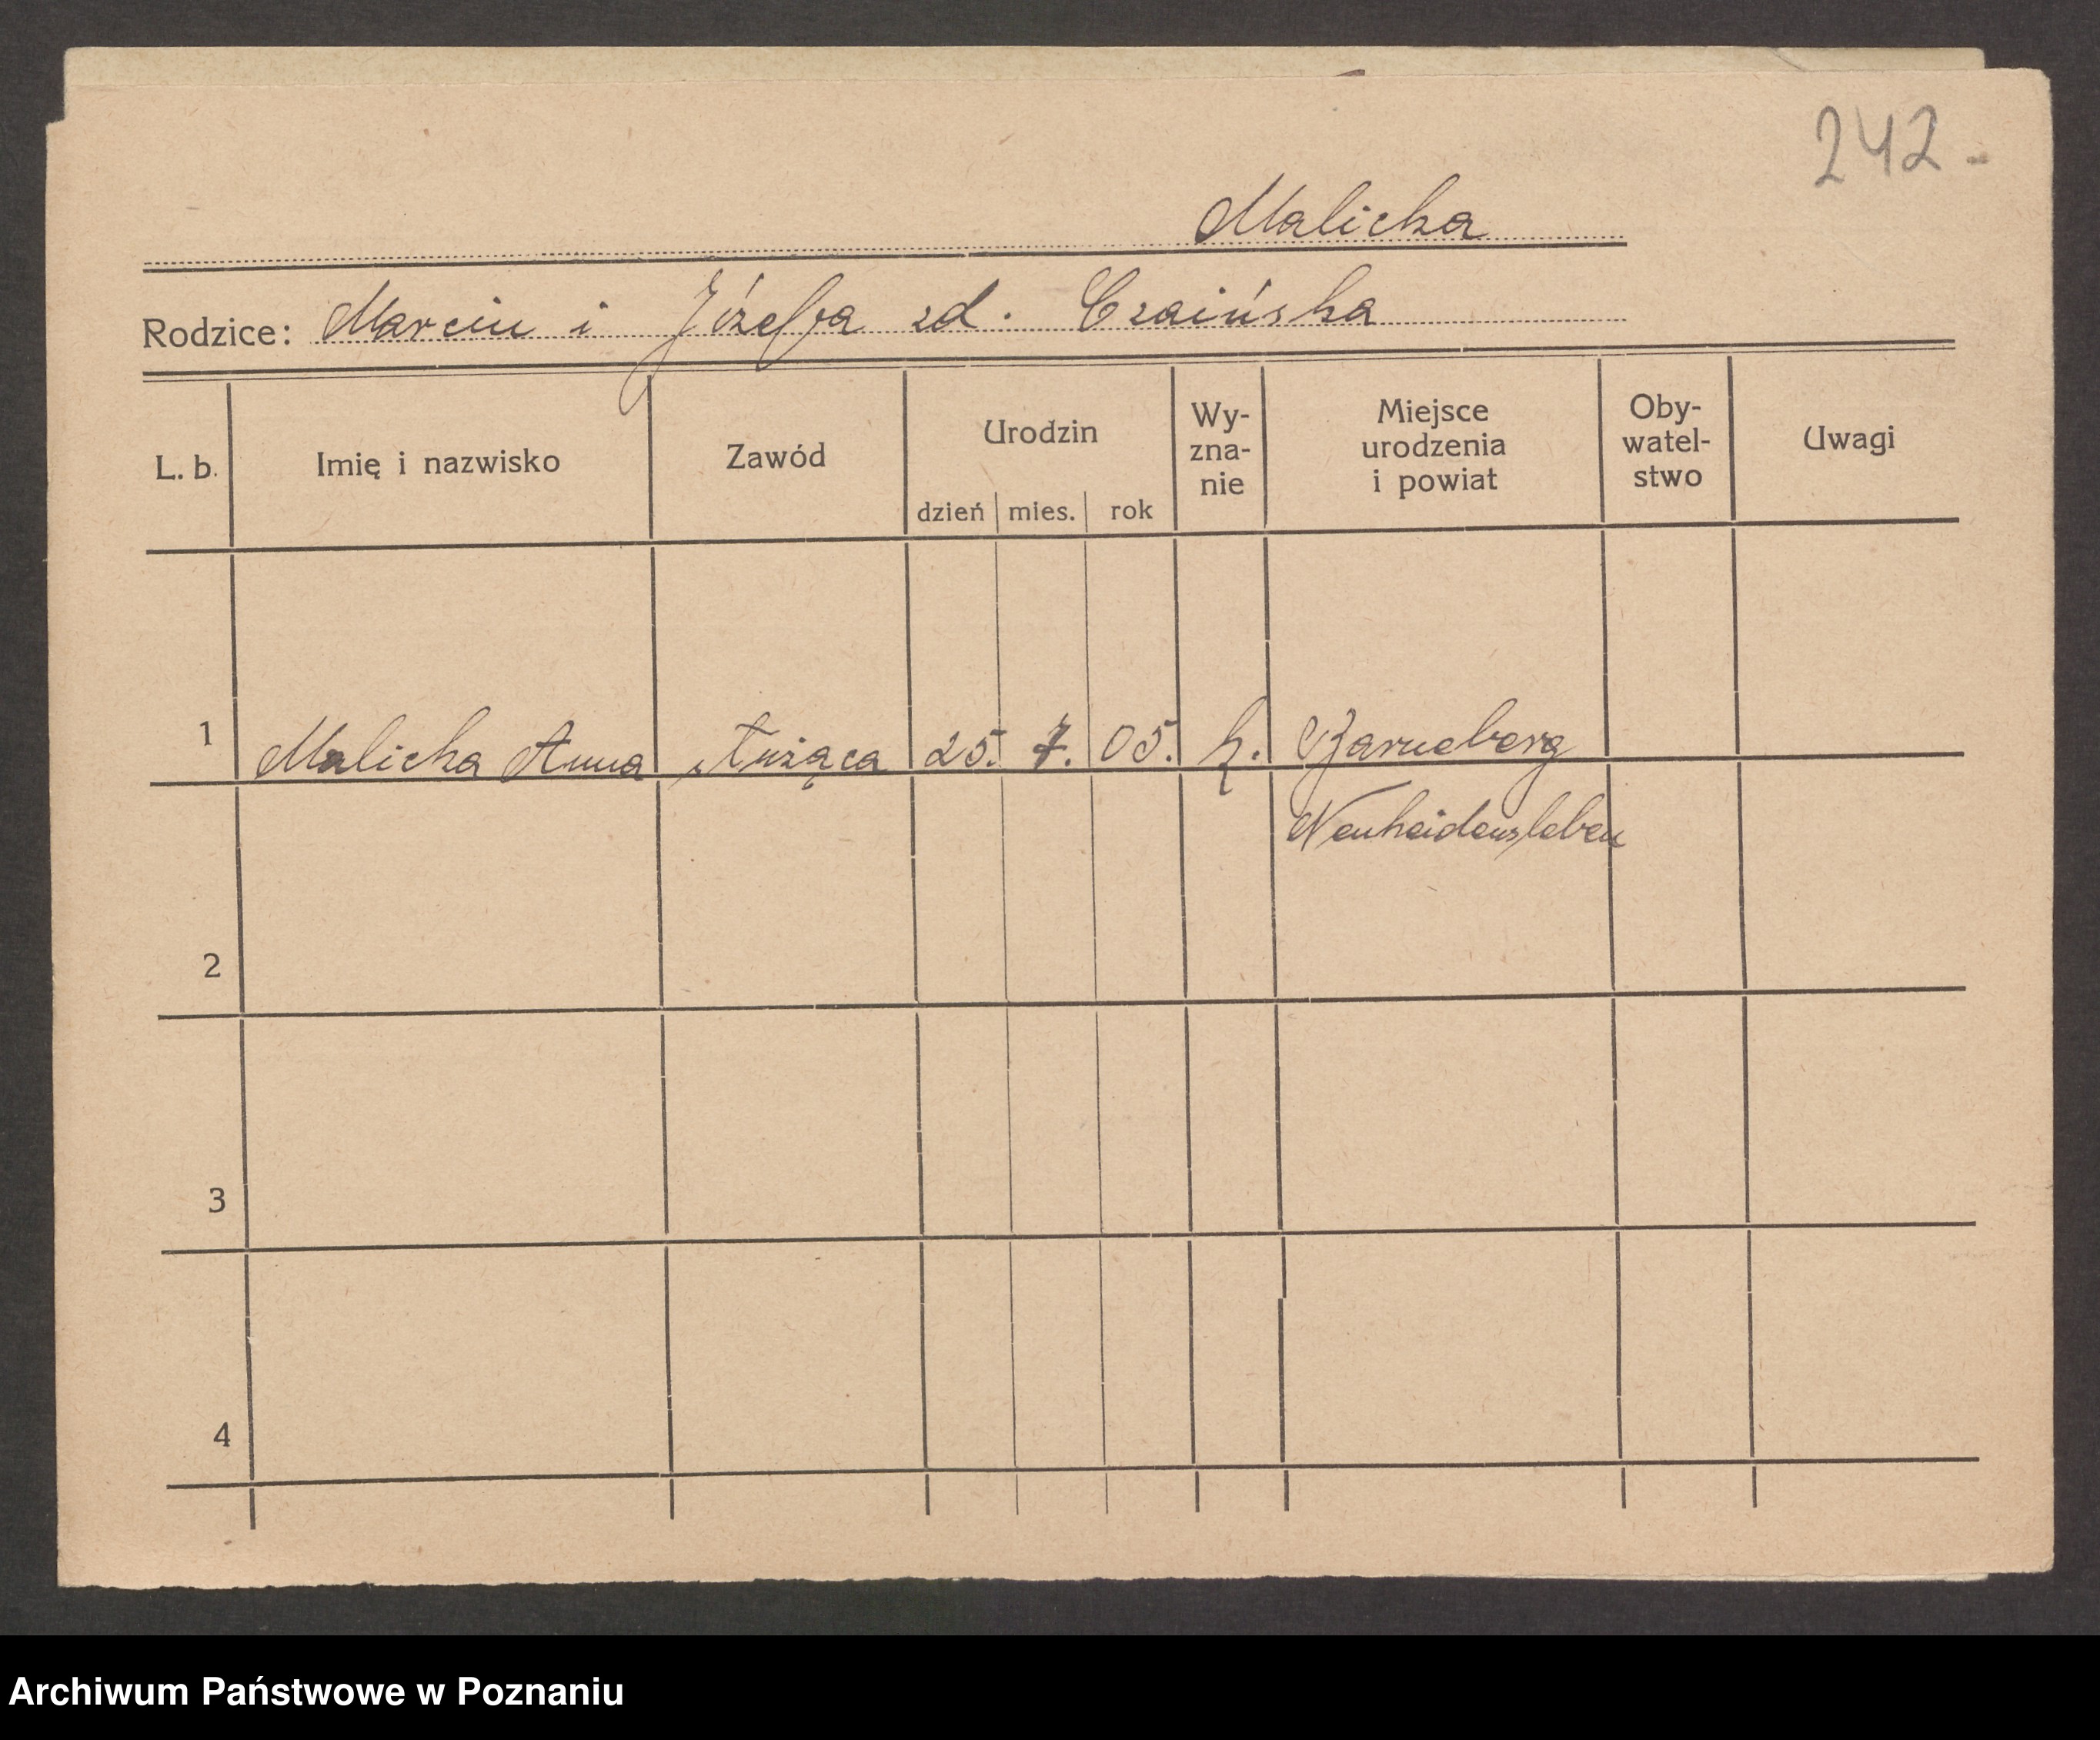 242-
Malicka
Rodzice: Marcin i Józefa zd. Czaińska
L. b. Imię i nazwisko Zawód Urodzin dzień mies. rok Wy-zna-nie Miejsce urodzenia i powiat Oby-watel-stwo Uwagi
1 Malicka Anna służąca 25. 7. 05. k. Barneberg
Neuhaidensleben
2
3
4
Archiwum Państwowe w Poznaniu